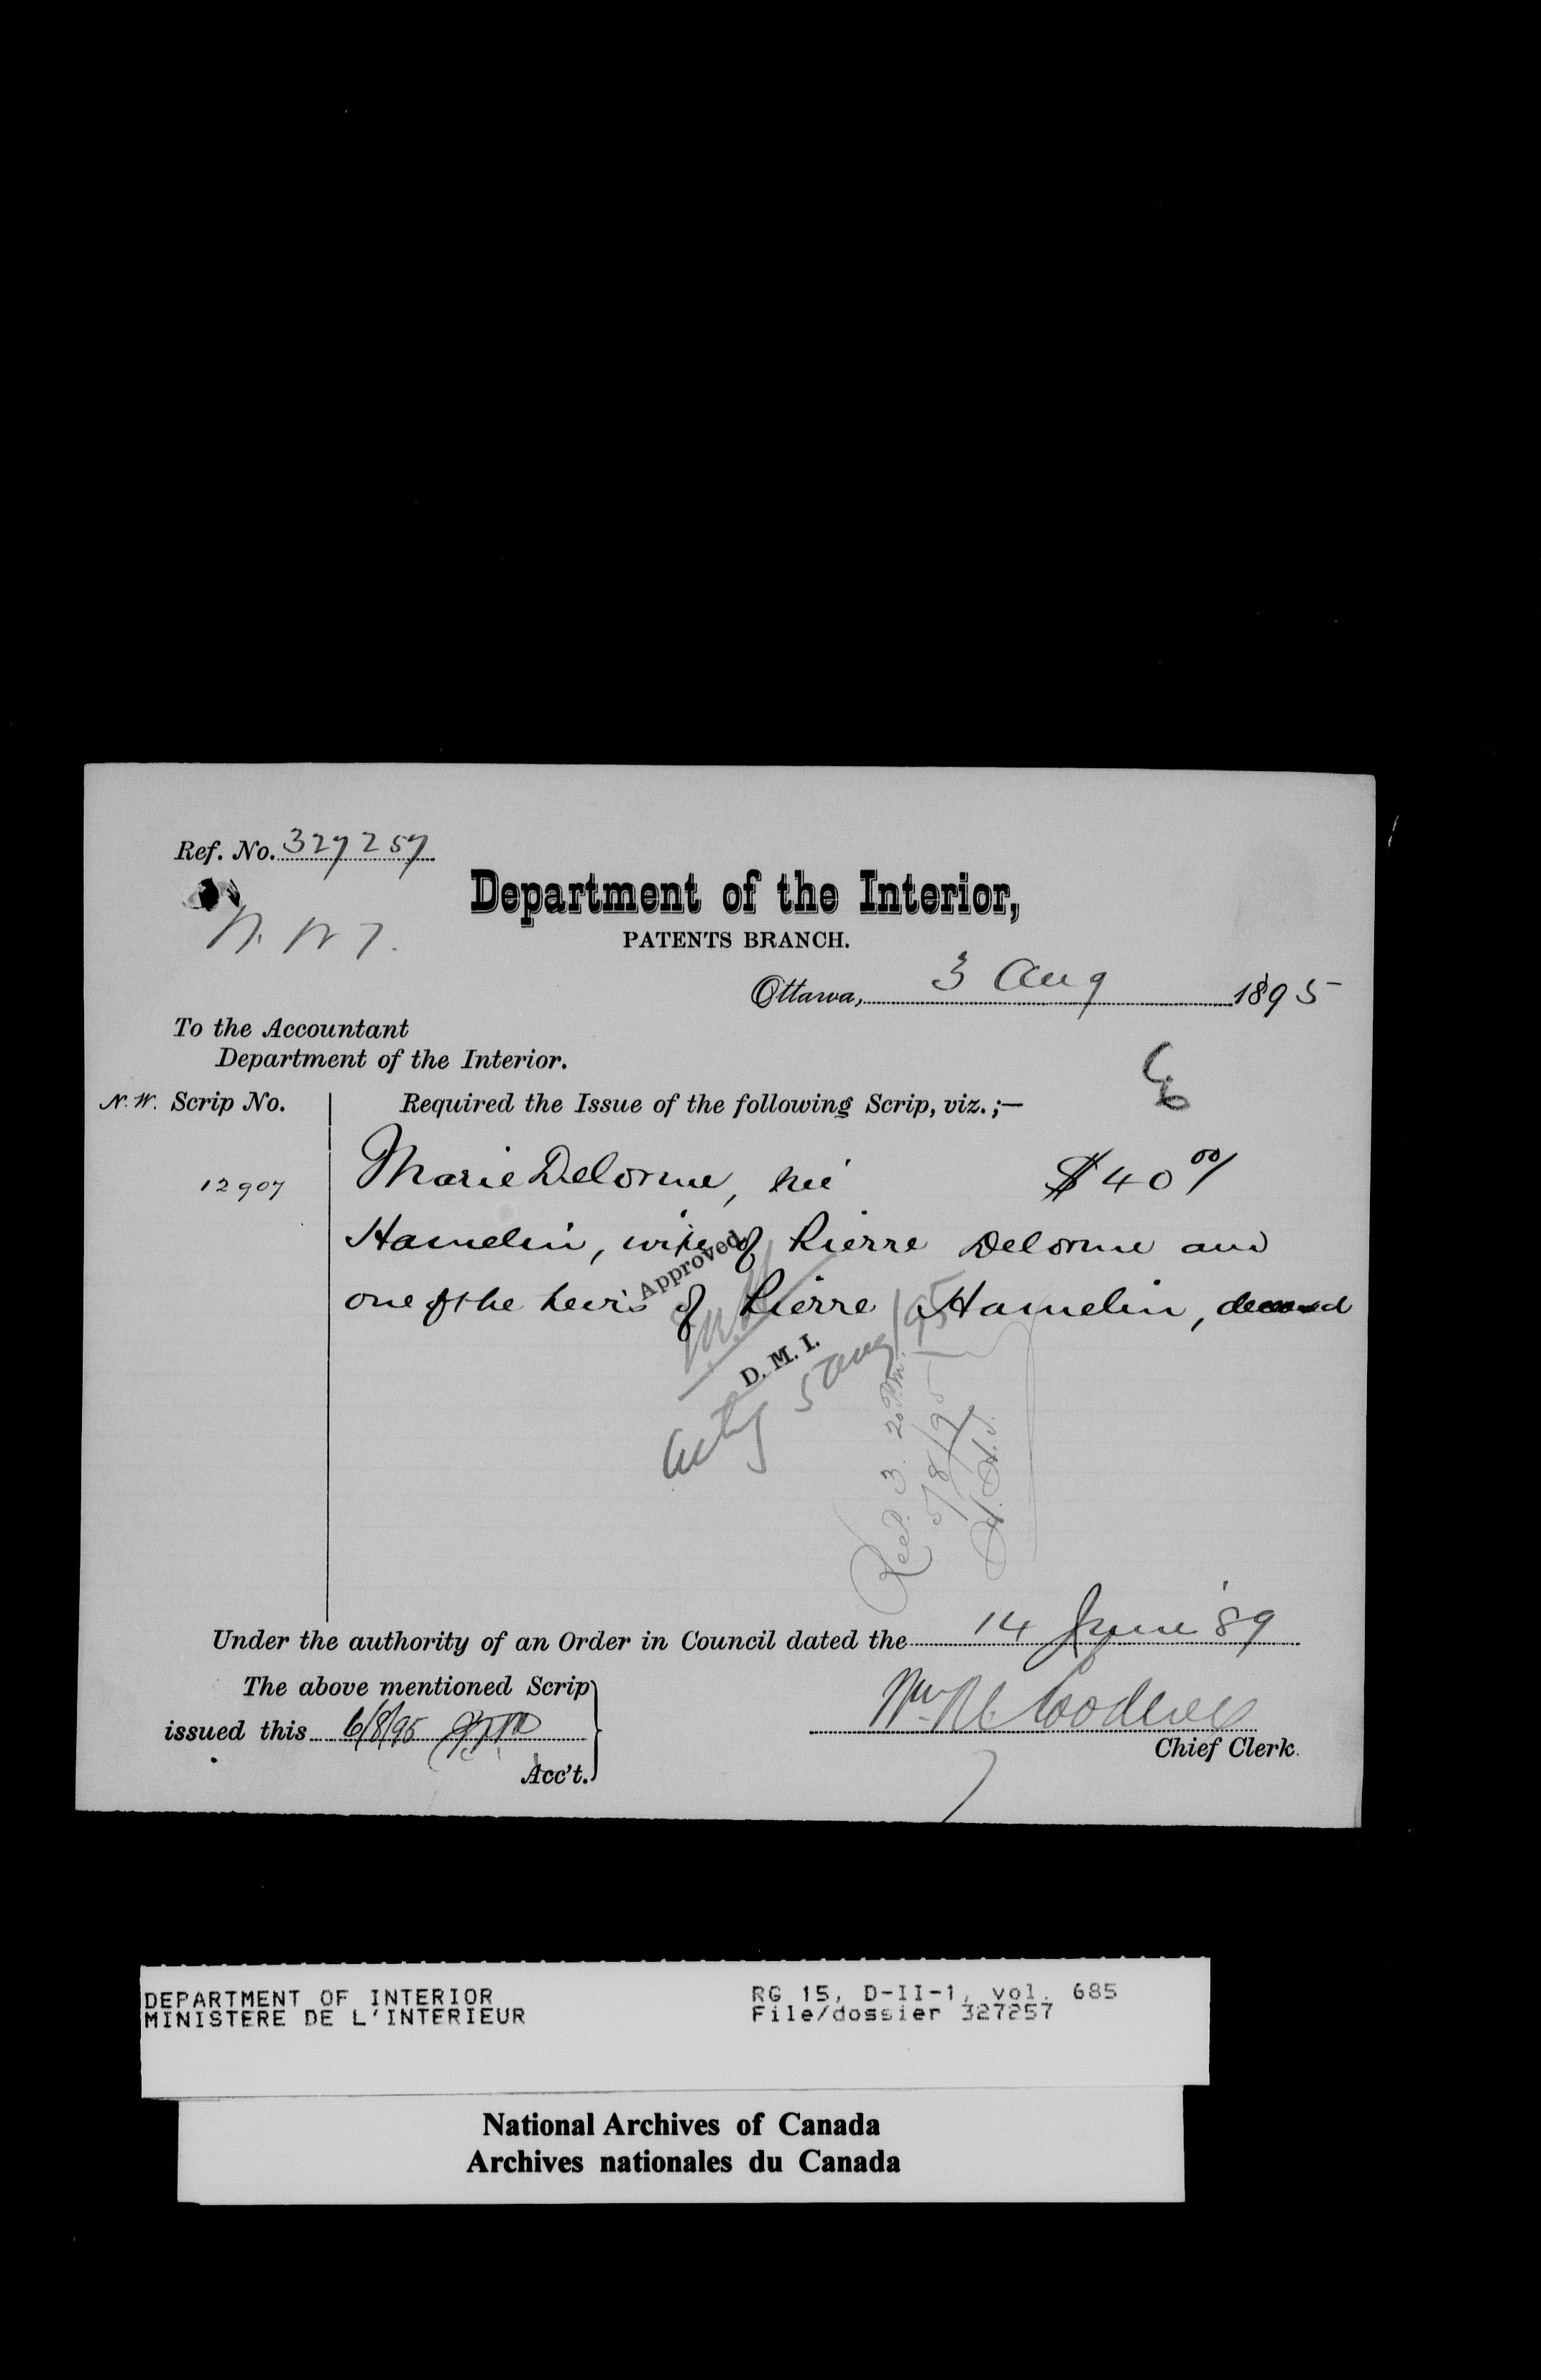 Ref. No. 327257
N. W. T.
Department of the Interior,
PATENTS BRANCH.
Ottawa, 3 Aug 1895
To the Accountant
Department of the Interior.
N. W. Scrip No.
Required the Issue of the following Scrip, viz.;—
12907
Marie Delorme, née $40 00/
Hamelin, wife of Pierre Delorme and
one of the heirs of Pierre Hamelin, deceased
Approved
D. M. I.
Acting 5 Aug/95
Recd. 3. 20 P.m.
5/8/95
Under the authority of an Order in Council dated the 14 June '89
The above mentioned Scrip
issued this 6/8/95
Acc't.
Chief Clerk.
DEPARTMENT OF INTERIOR
MINISTERE DE L'INTERIEUR
RG 15, D-II-1, vol. 685
File/dossier 327257
National Archives of Canada
Archives nationales du Canada